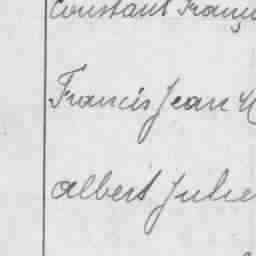 Constant Franç
Francis Jean
albert Julie